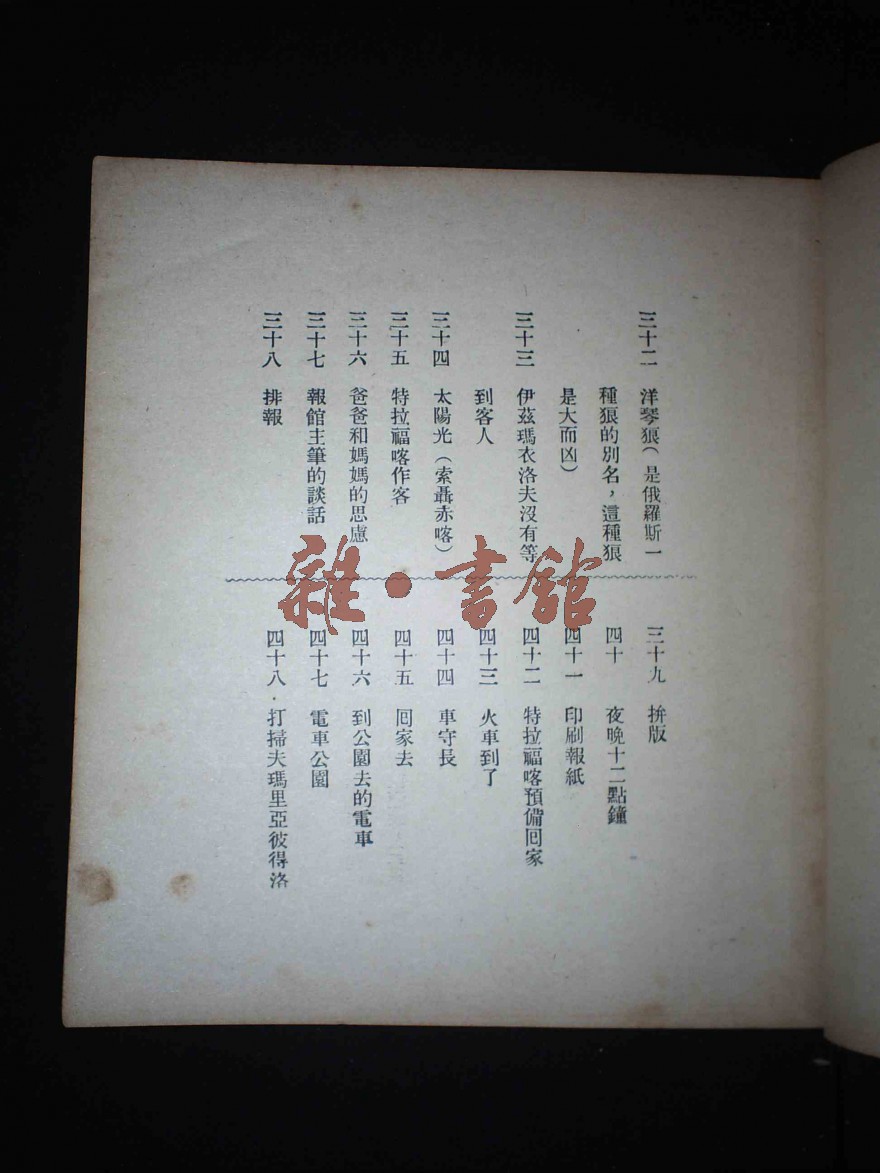 三十二　洋琴狼（是俄羅斯一
種狼的別名，這種狼
是大而凶）
三十三　伊茲瑪衣洛夫沒有等
到客人
三十四　太陽光（索聶赤喀）
三十五　特拉福喀作客
三十六　爸爸和媽媽的思慮
三十七　報館主筆的談話
三十八　排報
三十九　拚版
四十　夜晚十二點鐘
四十一　印刷報紙
四十二　特拉福喀預備回家
四十三　火車到了
四十四　車守長
四十五　回家去
四十六　到公園去的電車
四十七　電車公園
四十八．打掃夫瑪里亞彼得洛
雜·書館